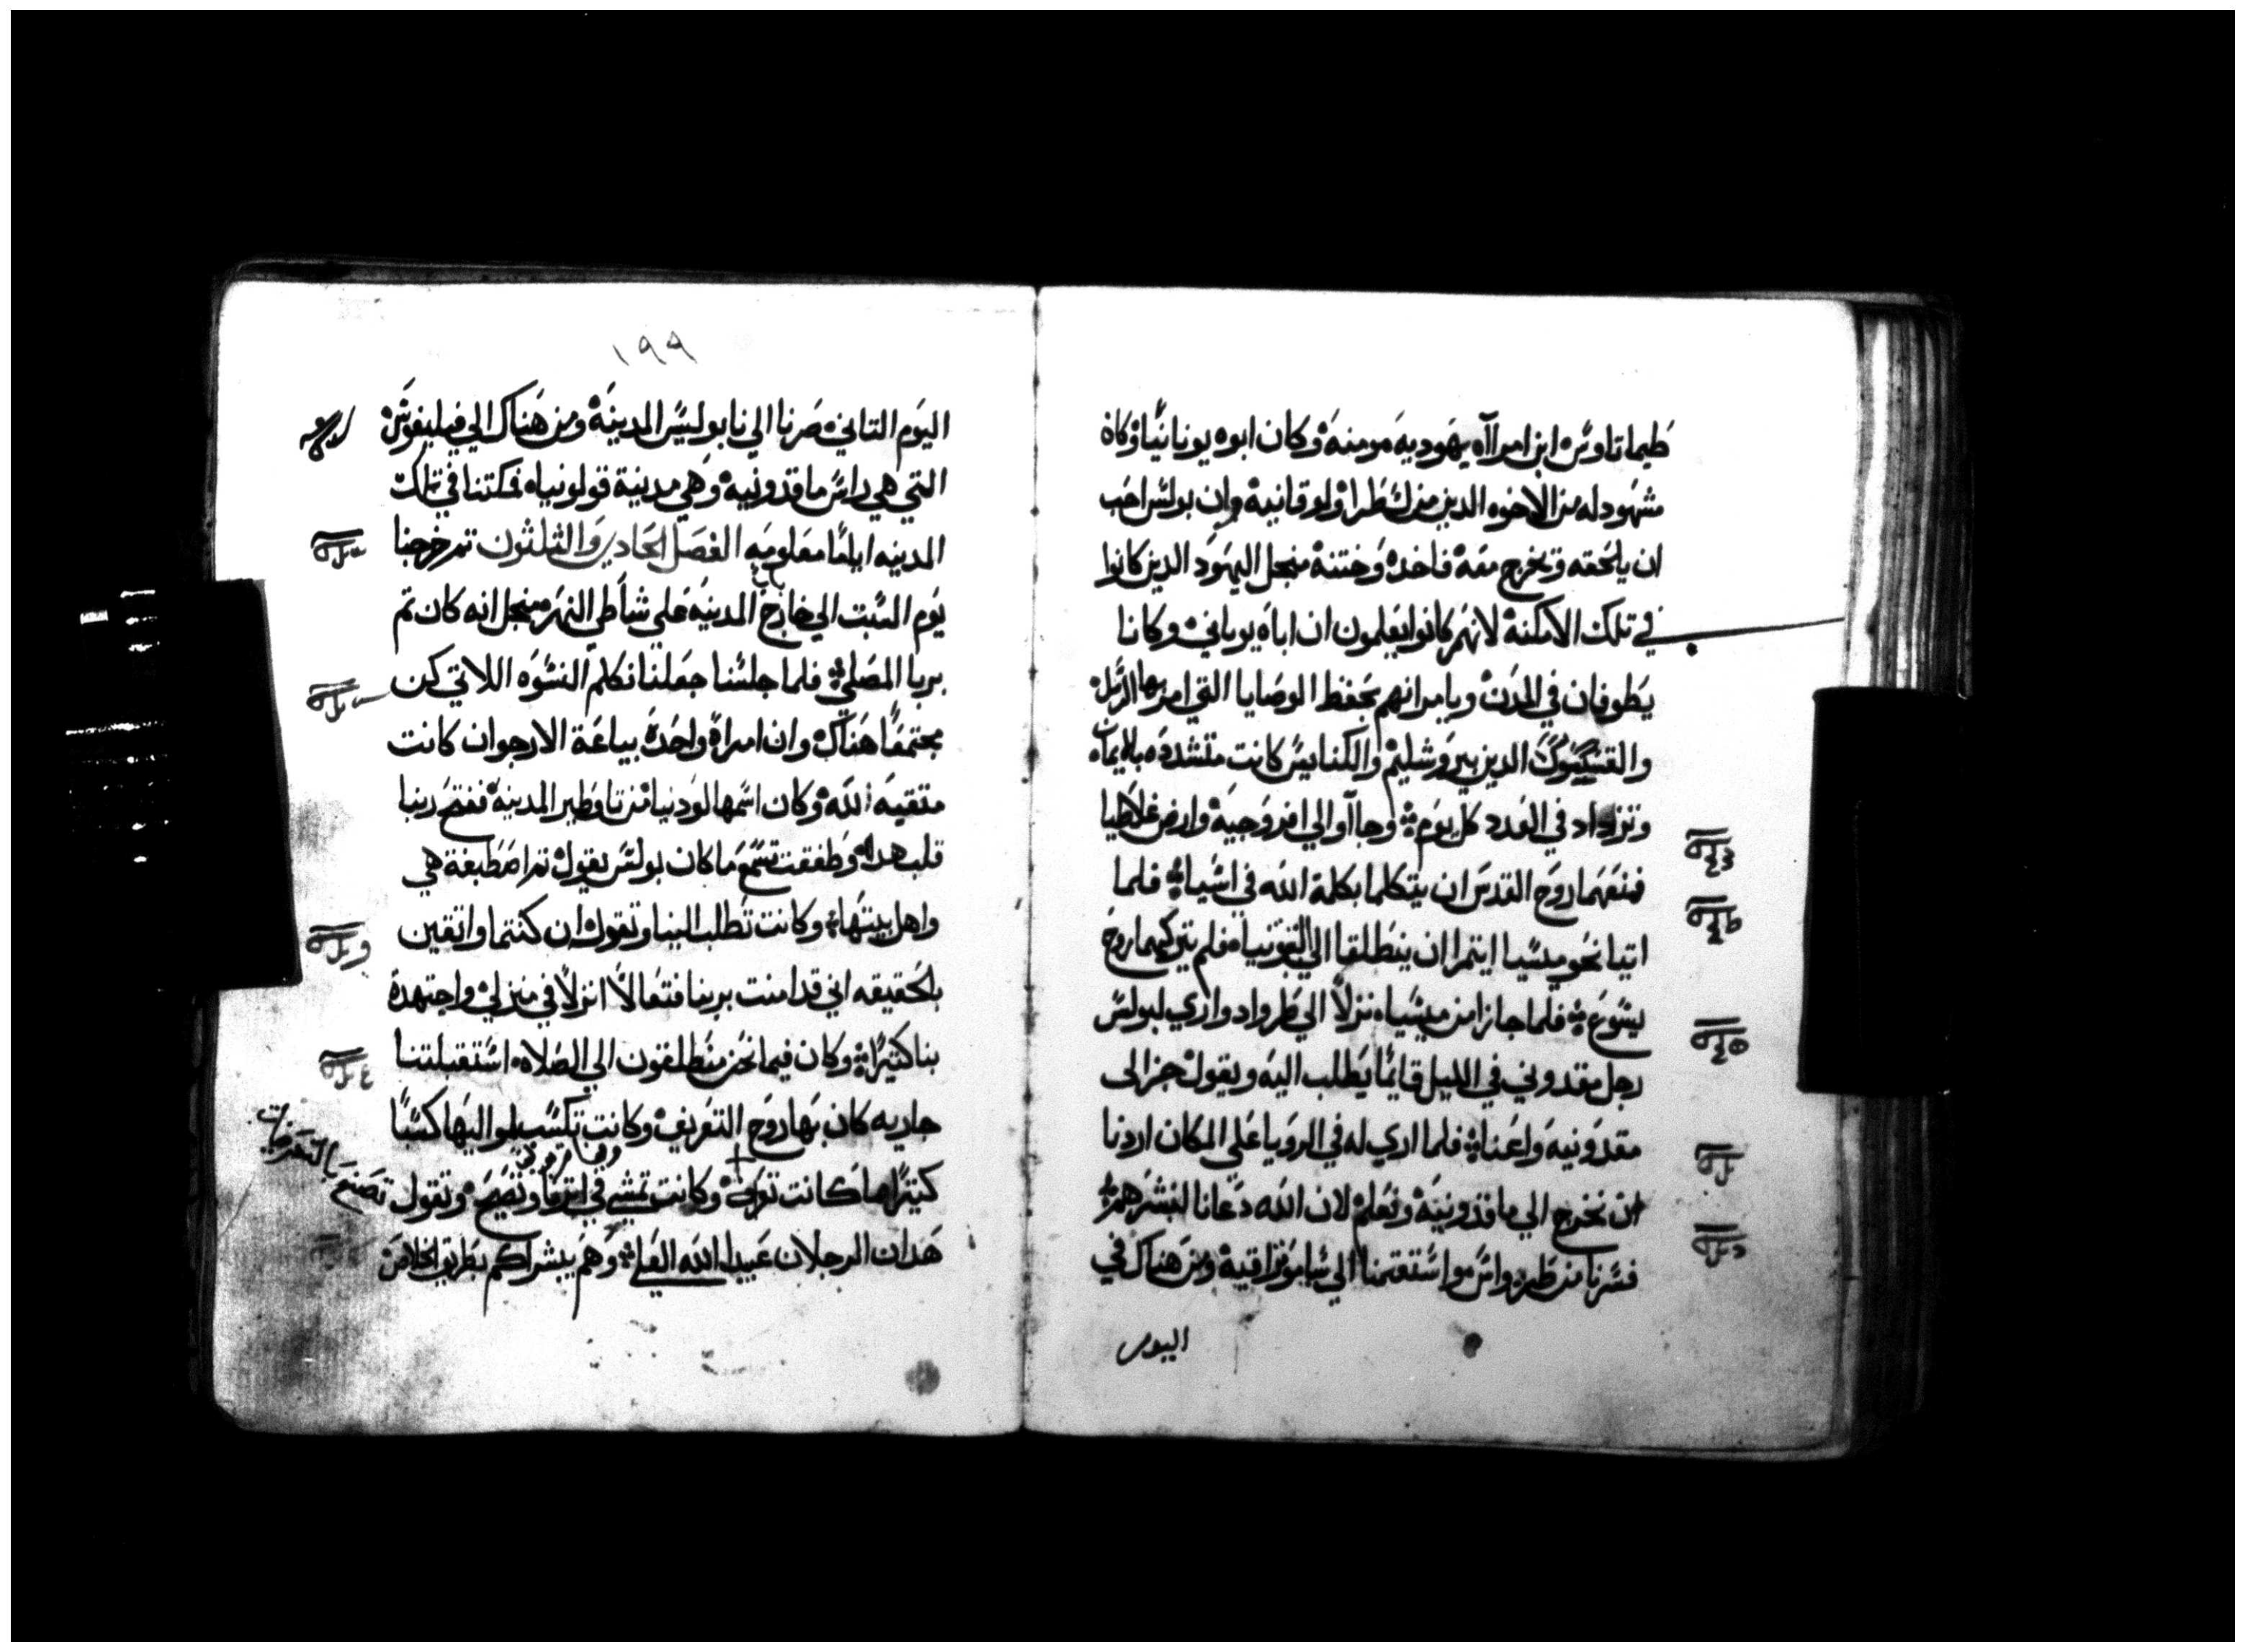 طيماتاوس ابن امراه يهوديه مومنه وكان ابوه يونانيا وكان
مشهود له من الاخوه الدين من لسطرا ولوقانيه وان بولس احب
ان يلحقه وتخرج معه فاخده وختنه منجل اليهود الدين كانوا
في تلك الامكنه لانهم كانوا يعلمون ان اباه يوناني وكانا
يطوفان في المدن ويامرانهم بحفظ الوصايا التي امر بها الرسل
والقسيسون الدين بيروشليم والكنايس كانت متشدده بالايمان
وتزداد في العدد كل يوم وجاآو الي افروجيه وارض غلاطيا
فمنعهما روح القدس ان يتكلما بكلمة الله في اسيا فلما
اتيا نحو ميسيا ايتمرا ان ينطلقا الي فلم يتركهما روح
يسوع فلما جازا من ميسيا نزلا الي طرواد واري لبولس
رجل مقدوني في الليل قايما يطلب اليه ويقول جز الى
مقدونيه واعنا فلما اري له في الرويا على المكان اردنا
ان نخرج الي ماقدونيه ونعلم لان الله دعانا لنبشرهم
فسرنا من طرواس واستقمنا الي ساموتراقيه ومن هناك في
اليوم
١٩٩
اليوم التاني صرنا الي نابوليس المدينه ومن هناك الي فيليفوس
التي هي راس ماقدونيه وهي مدينة قولونيا فمكتنا في تلك
المدينه اياما معلومه الفصل الحادي والثلثون تم خرجنا
يوم السبت الي خارج باب المدينه علي شاطي النهر منجل انه كان تم
يريا المصلي فلما جلسنا جعلنا نكلم النسوه اللاتي كن
مجتمعا هناك وان امراة واحدة بياعة الارجوان كانت
متقيه الله وكان اسمها لوديا من تاوطير المدينه ففتح ربنا
قلب هده وطفقت تسمع ما كان بولس يقول تم اصطبغة هي
واهل بيتها وكانت تطلب الينا وتقول ان كنتما واتقين
بالحقيقه اني قد امنت بربنا فتعالا انزلا في منزلي واجتهدة
بنا كتيرا وكان فيما نحن منطلقون الي الصلاه استقبلتنا
جاريه كان بها روح التعريف وكانت تكسب لمواليها كسبا
كتيرا كانت تعرف وكانت تمشي في اترنا وتصيح وتقول
تصنع بالتعريفات
هدان الرجلان عبيد الله العلي وهم يبشراكم بطريق الخلاص